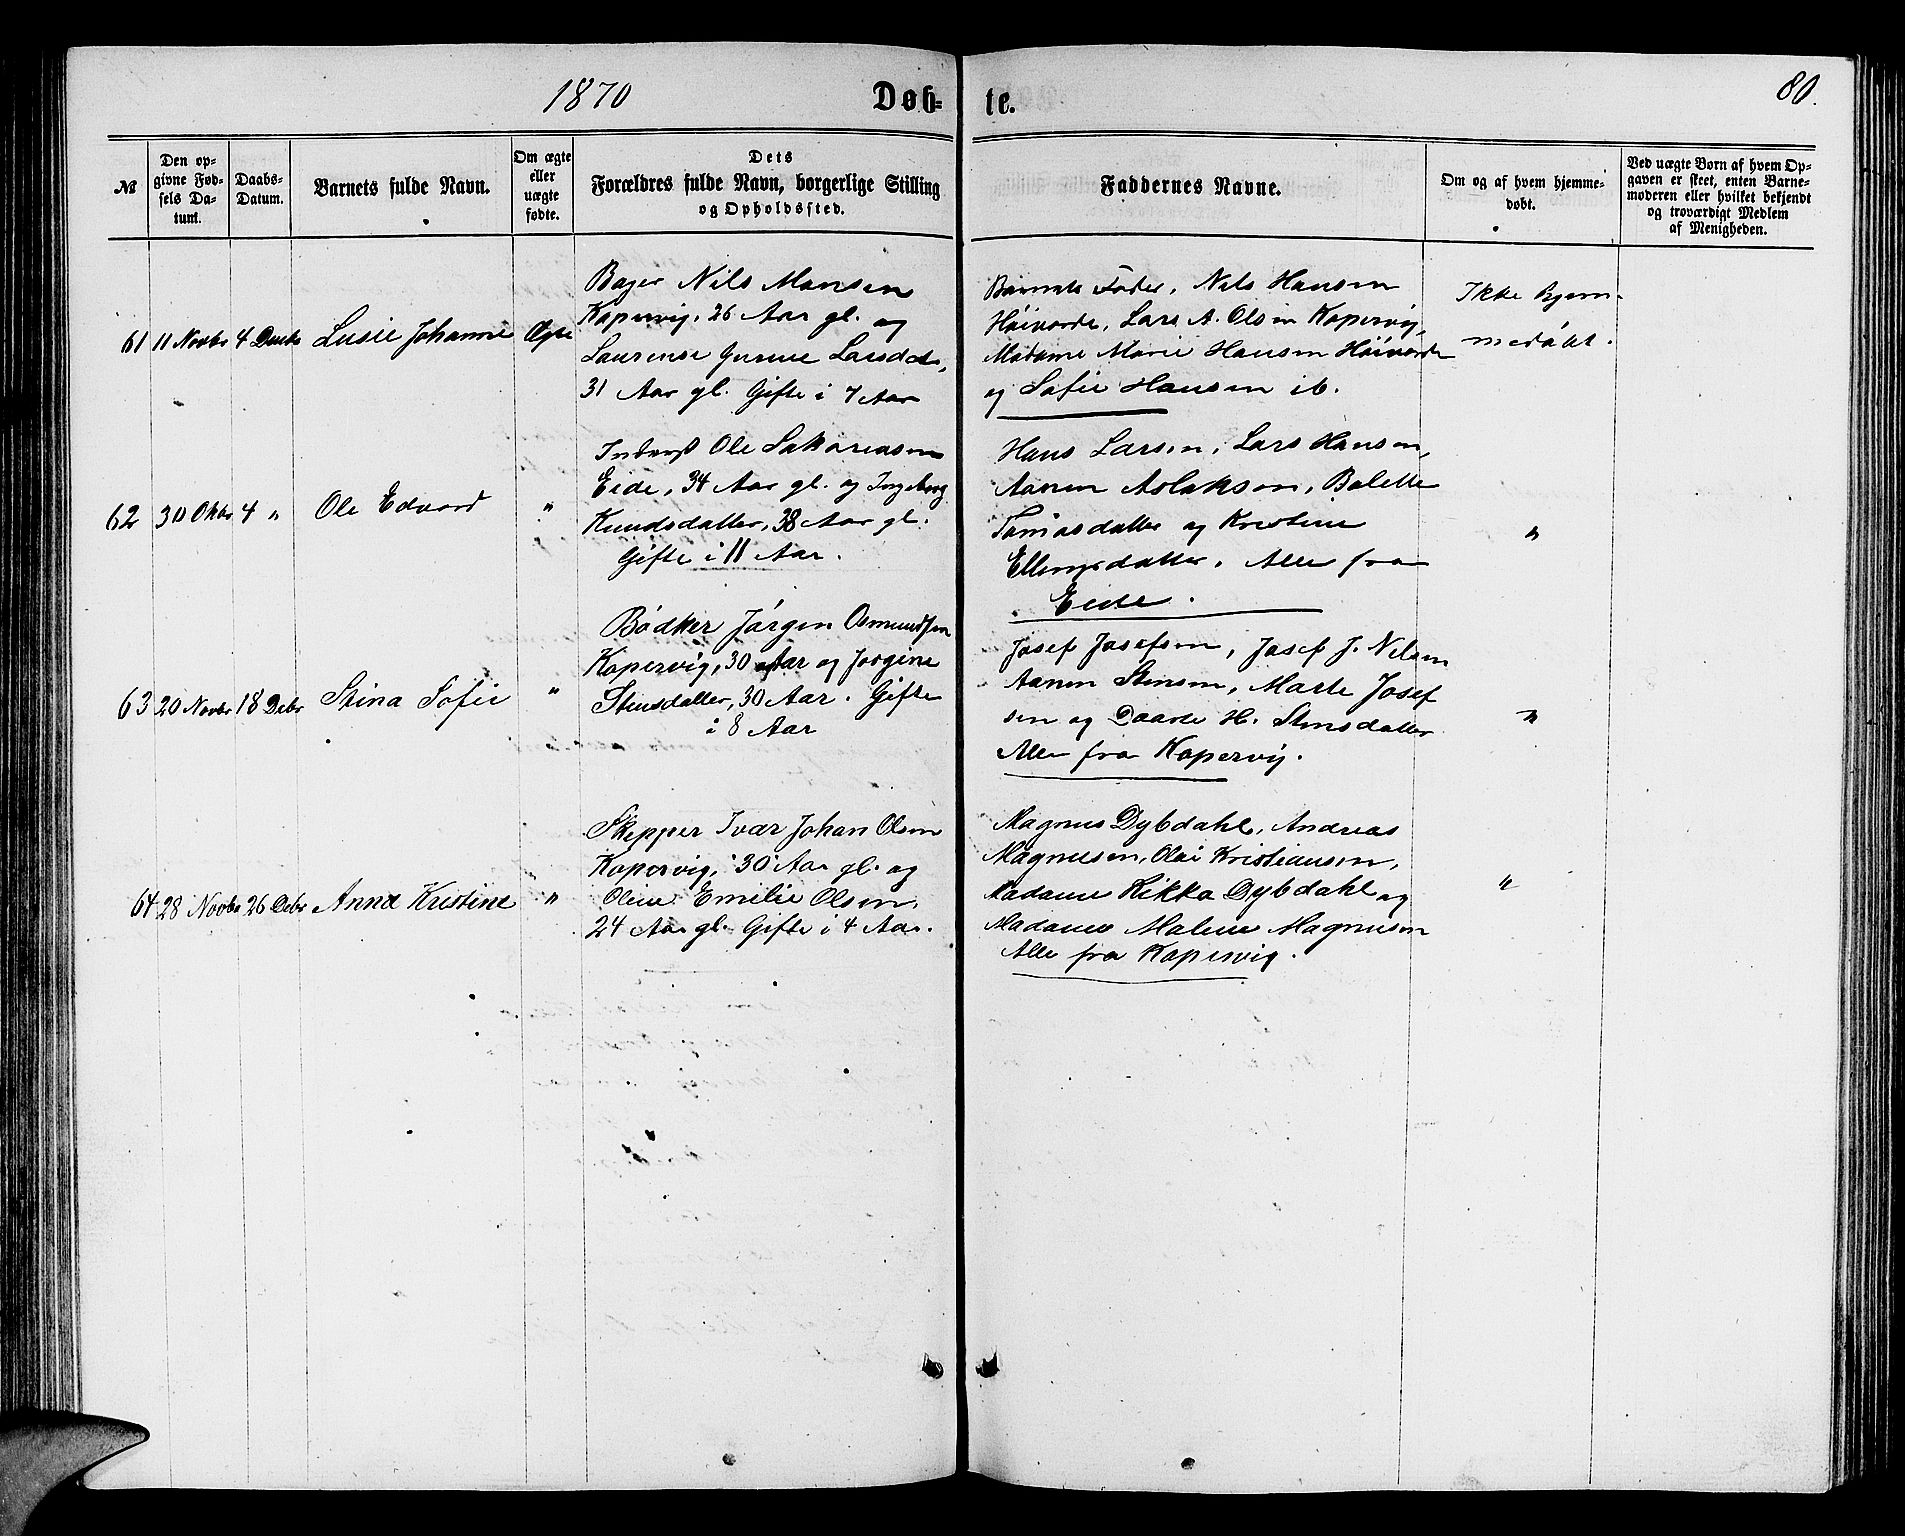 1870 Døb-
te. 80.
№
Den op-
givne Fød-
sels Da-
tum.
Daabs-
Datum.
Barnets fulde Navn.
Om ægte
eller
uægte
fødte.
Dets
Forældres fulde Navn, borgerlige Stilling
og Opholdssted.
Faddernes Navne.
Om og af hvem hjemme-
døbt.
Ved uægte Børn af hvem Op-
gaven er skeet, enten Barne-
moderen eller hvilket bekjendt
og troværdigt Medlem
af Menigheden.
61 11 Novbr 4 Decbr Lusie Johanne Ægte
Bager Nils Monsen
Kopervig, 26 Aar gl. og
Laurense Gurine Larsdat,
31 Aar gl. Gifte i 7 Aar
Barnets Fader, Nels Hansen
Høivarde, Lars A. Olsen Kopervig,
Madame Marie Hansen Høivarde
og Sofie Hansen ib.
Ikke hjem-
medøbt.
62 30 Oktbr 4 " Ole Edvard "
Inderst Ole Sakariasen
Eide, 34 Aar gl. og Ingeborg
Knudsdatter, 38 Aar gl.
Gifte i 11 Aar.
Hans Larsen, Lars Hansen,
Aanen Aslaksen, Bolette
Tomasdatter og Kristine
Ellingsdatter. Alle fra
Eide.
"
63 20 Novbr 18 Debr Stina Sofie "
Bødker Jørgen Osmundsen
Kopervig, 30 Aar og Jorgine
Stensdatter, 30 Aar. Gifte
i 8 Aar
Josef Josefsen, Josef J. Nelsen
Aanen Stensen, Marte Josef
sen og Daarte H. Stensdatter
Alle fra Kopervig.
"
64 28 Novbr 26 Debr Anna Kristine "
Skepper Ivar Johan Olsen
Kopervig, 30 Aar gl. og
Oline Emilie Olsen,
24 Aar gl. Gifte i 4 Aar.
Magnus Dybdahl, Andreas
Magnusen, Olai Kristiansen,
Madame Rikka Dybdahl og
Madame Malene Magnusen
Alle fra Kopervig.
"